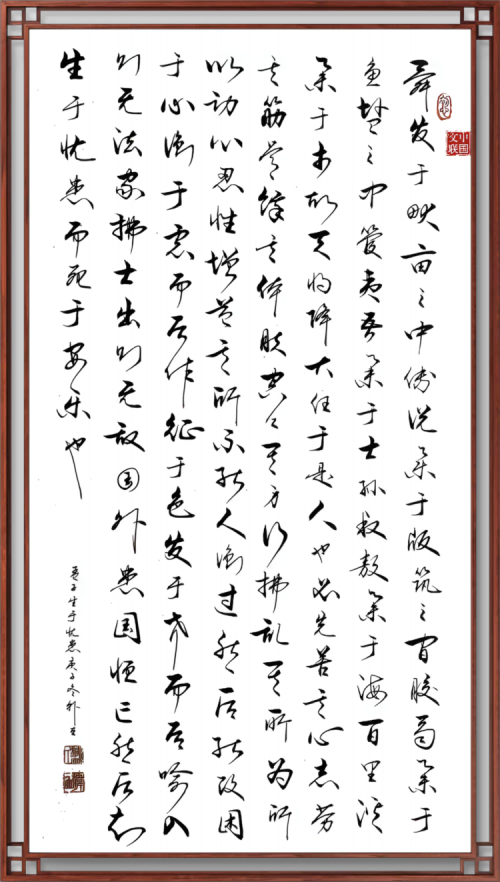 舜发于畎亩之中傅说举于版筑之间胶鬲举于
鱼盐之中管夷吾举于士孙叔敖举于海百里奚
举于市故天将降大任于是人也必先苦其心志劳
其筋骨饿其体肤空乏其身行拂乱其所为所
以动心忍性增益其所不能人恒过然后能改困
于心衡于虑而后作征于色发于声而后喻入
则无法家拂士出则无敌国外患国恒亡然后知
生于忧患而死于安乐也
孟子生于忧患庚子冬
中国文联